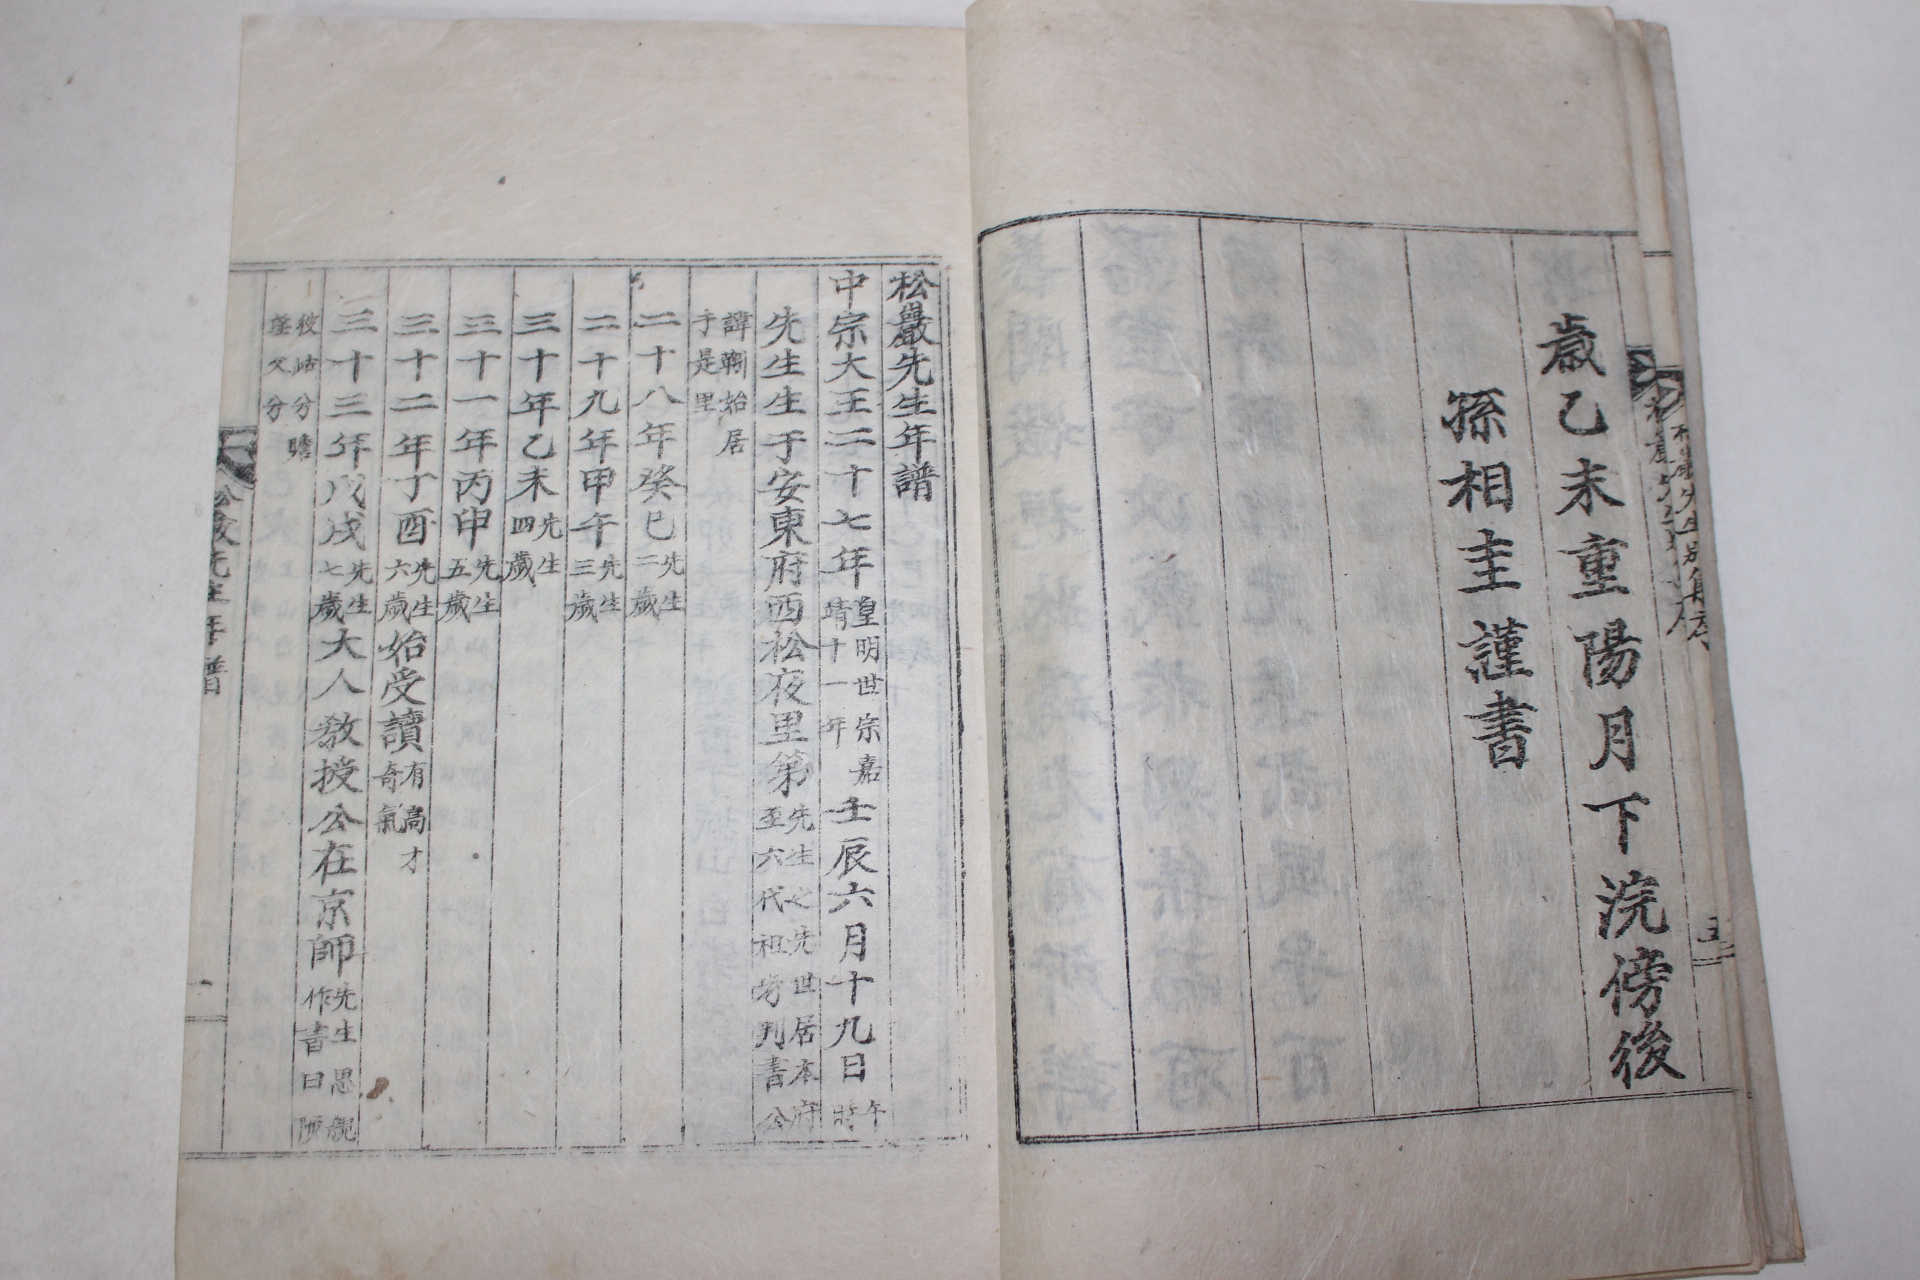 歲乙未重陽月下浣傍後
孫相圭謹書
松巖先生年譜
中宗大王二十七年皇明世宗嘉靖十一年壬辰六月十九日午時
先生生于安東府西松夜里第先生之先世居本府至六代祖考判書公
諱靷始居于是里
二十八年癸巳先生二歲
二十九年甲午先生三歲
三十年乙未先生四歲
三十一年丙申先生五歲
三十二年丁酉先生六歲始受讀有高才奇氣
三十三年戊戌先生七歲大人教授公在京師先生思親作書曰陟
彼岵分瞻望父分
松巖先生年譜
一
五